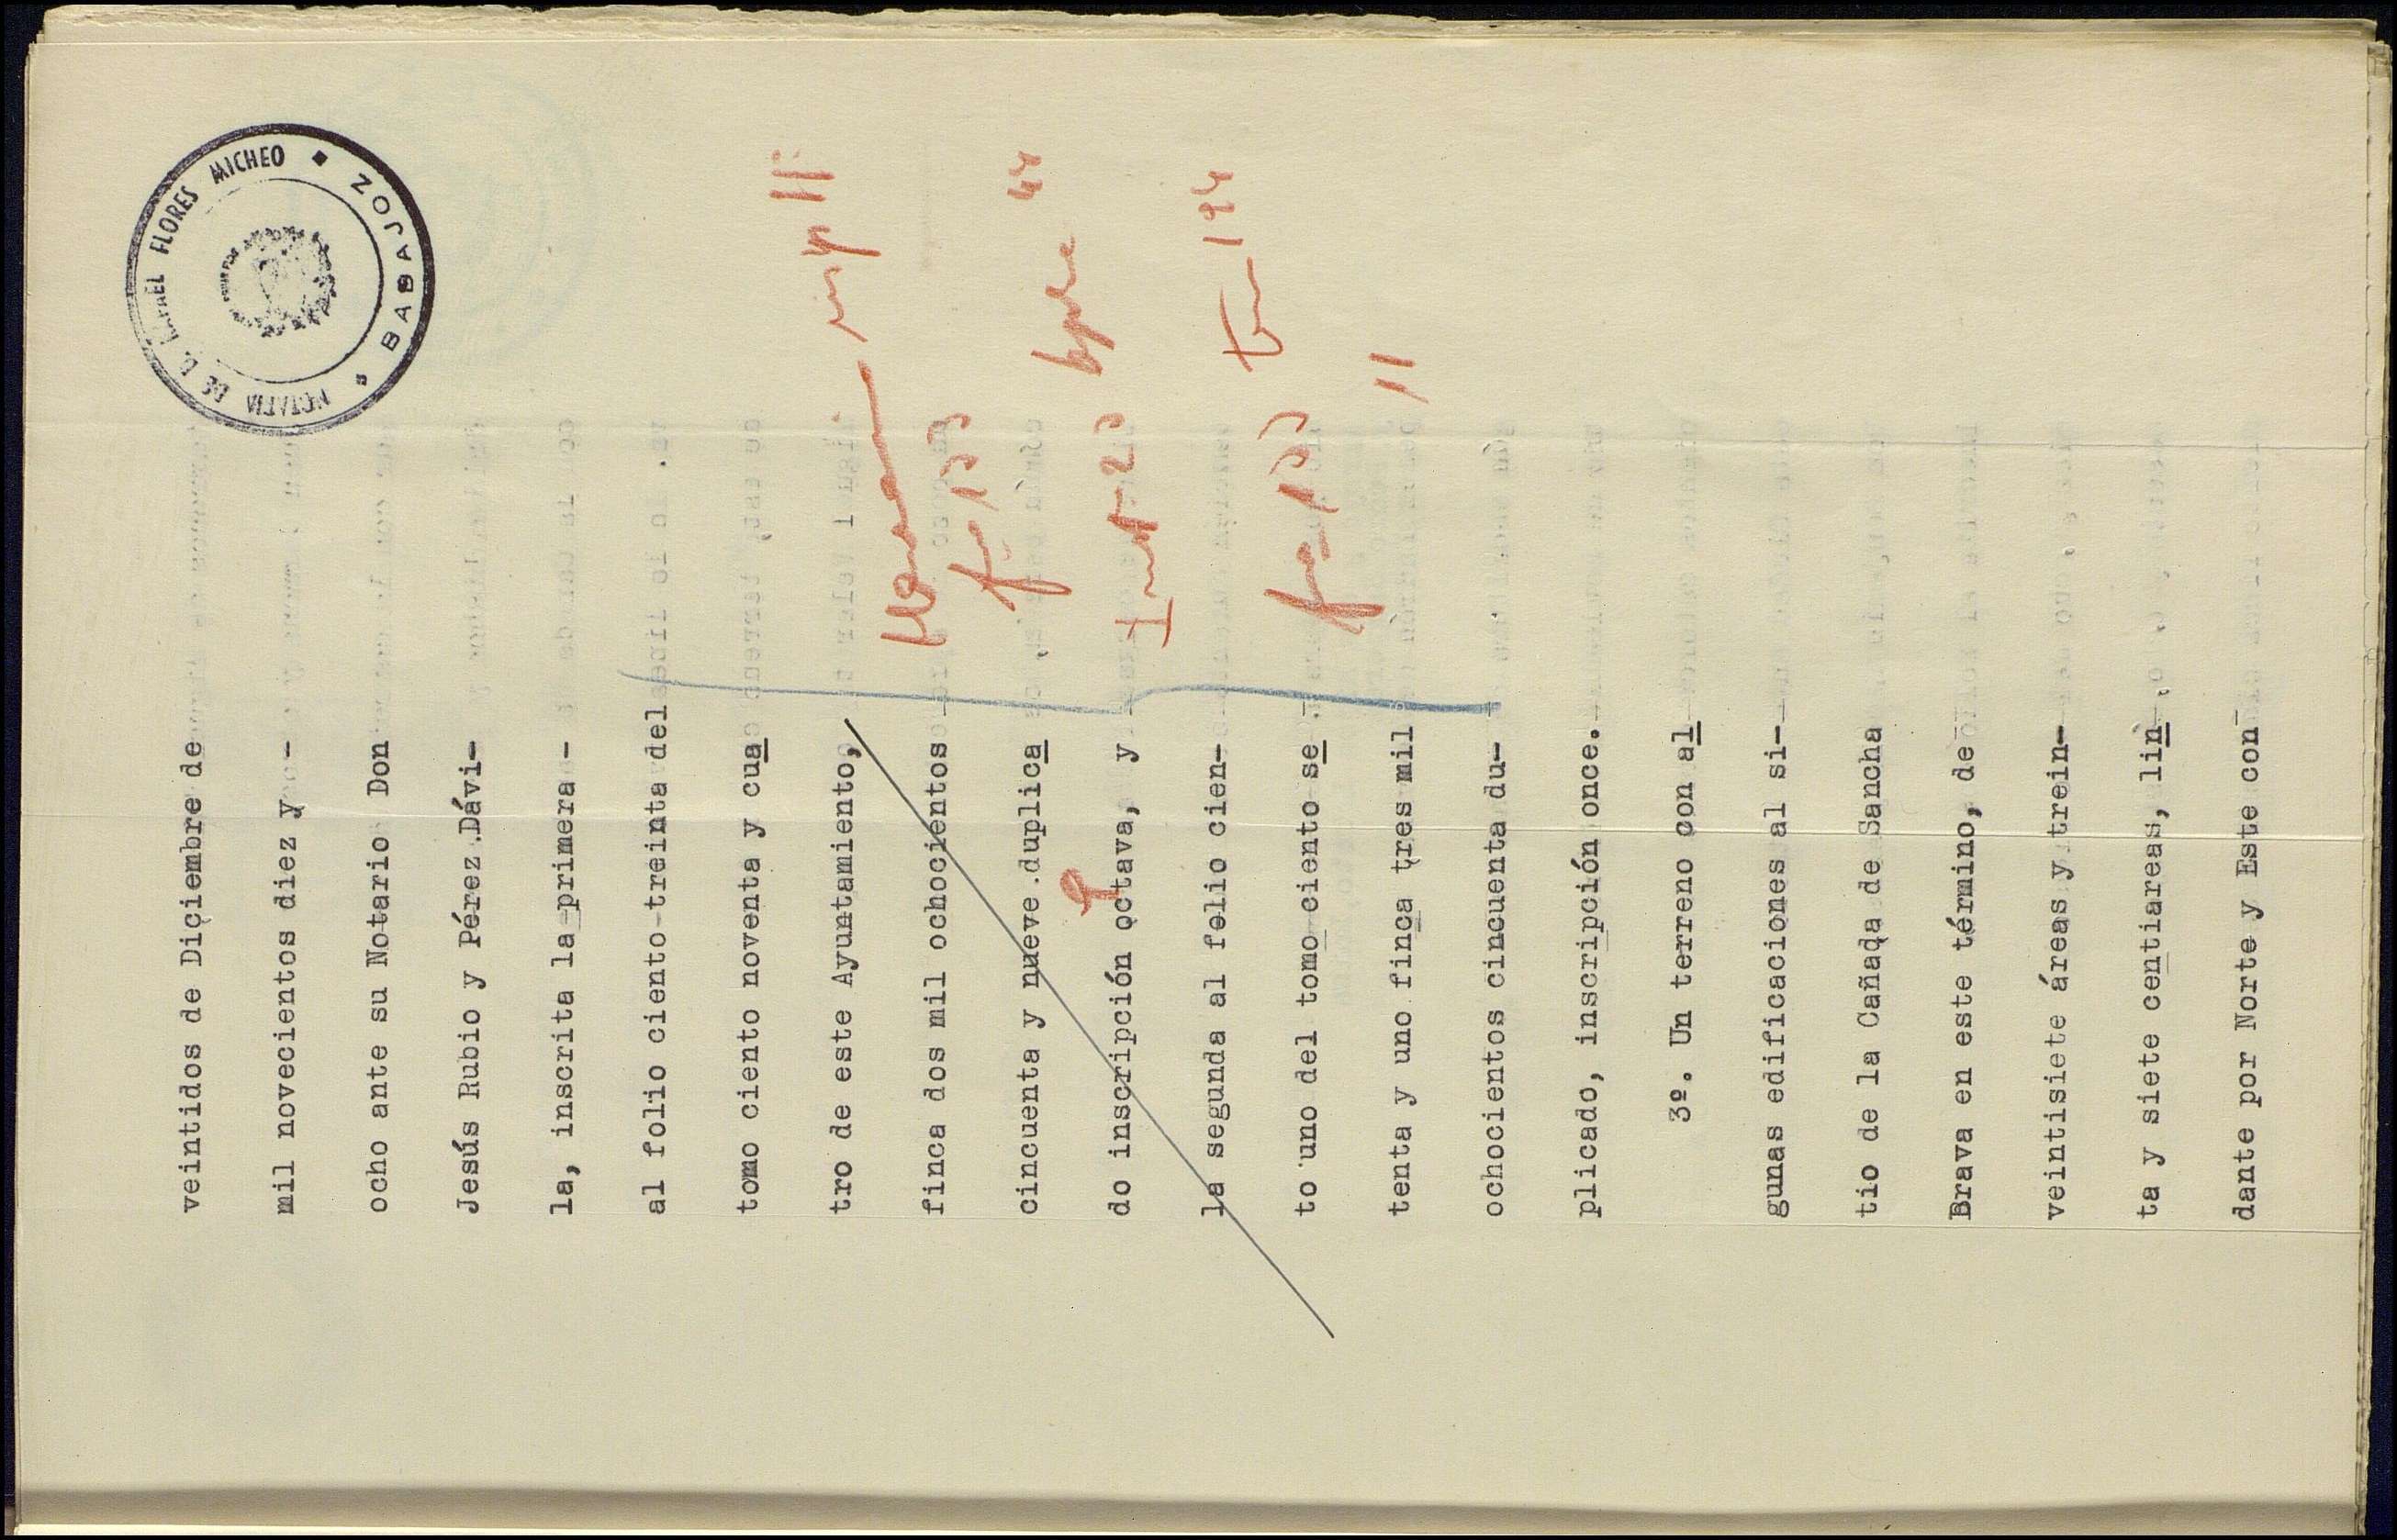 NOTARIA DE D. RAFAEL FLORES MICHEO
BABAJOZ
veintidos de Diciembre de
mil novecientos diez y -
ocho ante su Notario Don
Jesús Rubio y Pérez Dávi-
la, inscrita la primera -
al folio ciento treinta del
tomo ciento noventa y cua
tro de este Ayuntamiento,
finca dos mil ochocientos
cincuenta y nueve duplica
do inscripción octava, y
la segunda al folio cien-
to uno del tomo ciento se
tenta y uno finca tres mil
ochocientos cincuenta du-
plicado, inscripción once.
3º. Un terreno con al
gunas edificaciones al si-
tio de la Cañada de Sancha
Brava en este término, de
veintisiete áreas y trein-
ta y siete centiareas, lin
dante por Norte y Este con
11
194
11
9